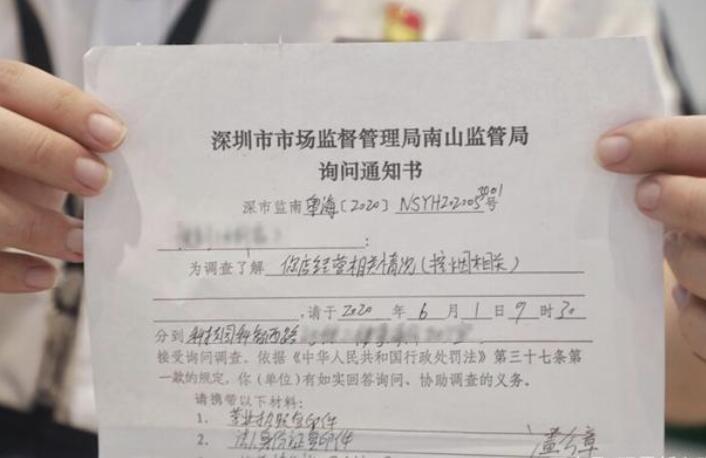 深圳市市场监督管理局南山监管局
询问通知书
深市监南 望海〔2020〕NSYH2020053001号
:
为调查了解 你店经营相关情况(控烟相关)
,请于2020年6月1日9时30
分到 科技园科智西路
接受询问调查。依据《中华人民共和国行政处罚法》第三十七条第
一款的规定,你(单位)有如实回答询问、协助调查的义务。
请携带以下材料:
1. 营业执照复印件
2. 法人身份证复印件 盖公章